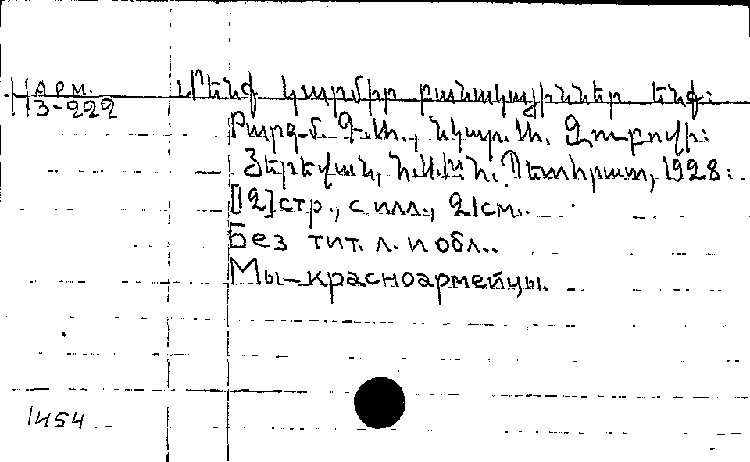 АРМ.
3-222
Մենք կարմիր բանակայիններ ենք:
Թարգմ. Գ. նկար. Ն. Զուբովի:
Յերեվան, Պետհրատ, 1928:
[12] стр., с илл., 21 см.
Без тит. л. и обл..
Мы-красноармейцы.
1454